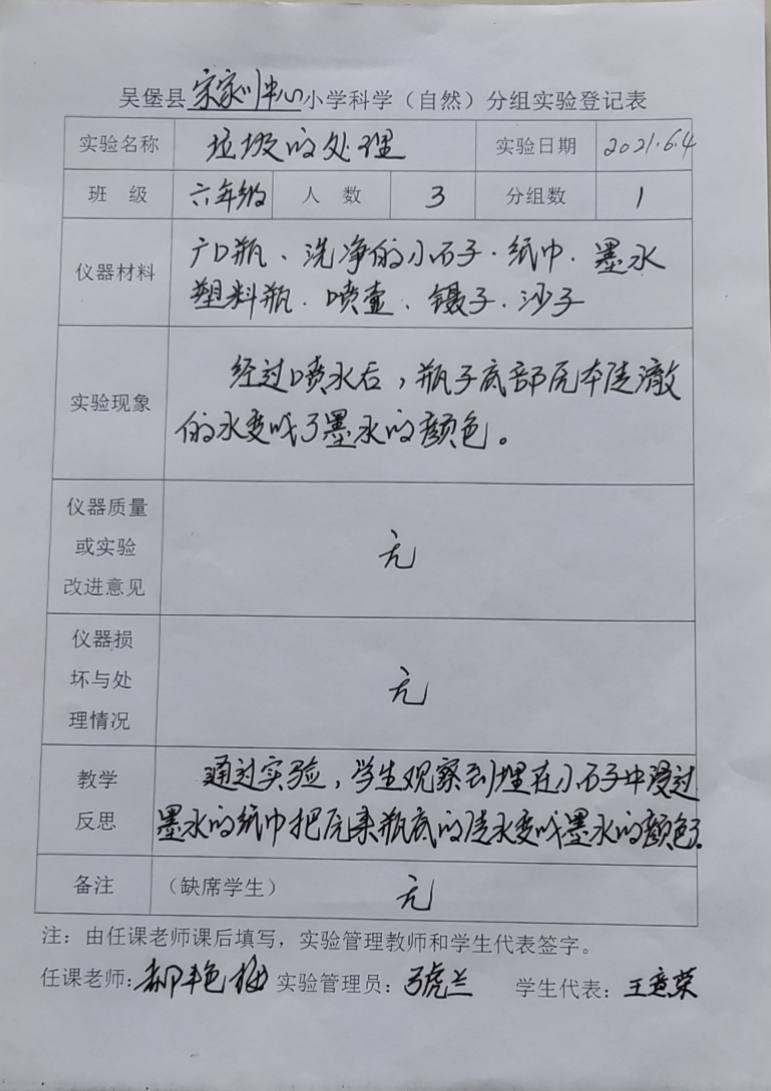 吴堡县宋家川中心小学科学（自然）分组实验登记表
实验名称 垃圾的处理 实验日期 2021.6.4
班 级 六年级 人 数 3 分组数 1
仪器材料
广口瓶、洗净的小石子.纸巾.墨水
塑料瓶.喷壶、镊子.沙子
实验现象
经过喷水后，瓶子底部原本清澈
的水变成了墨水的颜色。
仪器质量
或实验
改进意见
无
仪器损
坏与处
理情况
无
教学
反思
通过实验，学生观察到埋在小石子中浸过
墨水的纸巾把原来瓶底的清水变成墨水的颜色了.
备注 （缺席学生） 无
注：由任课老师课后填写，实验管理教师和学生代表签字。
任课老师:郝艳梅 实验管理员:弓虎兰 学生代表:王意荣